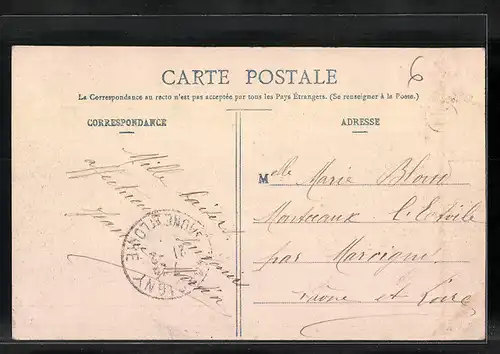 6
CARTE POSTALE
La Correspondance au recto n'est pas acceptée par tous les Pays Étrangers. (Se renseigner à la Poste.)
CORRESPONDANCE
ADRESSE
Mille baisers
Jean
SAONE & LOIRE
21
IGNY
Melle Marie
Montceaux l'Étoile
par Marcigny
Saone et Loire